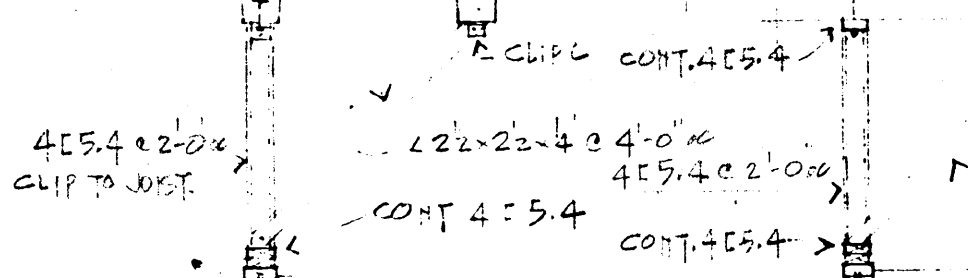 CLIP L
CONT. 4[5.4
4[5.4 @ 2'-0"oc
CLIP TO JOIST.
L 2½ x 2½ x ¼ @ 4'-0" oc
4[5.4 @ 2'-0"oc
CONT 4[5.4
CONT. 4[5.4